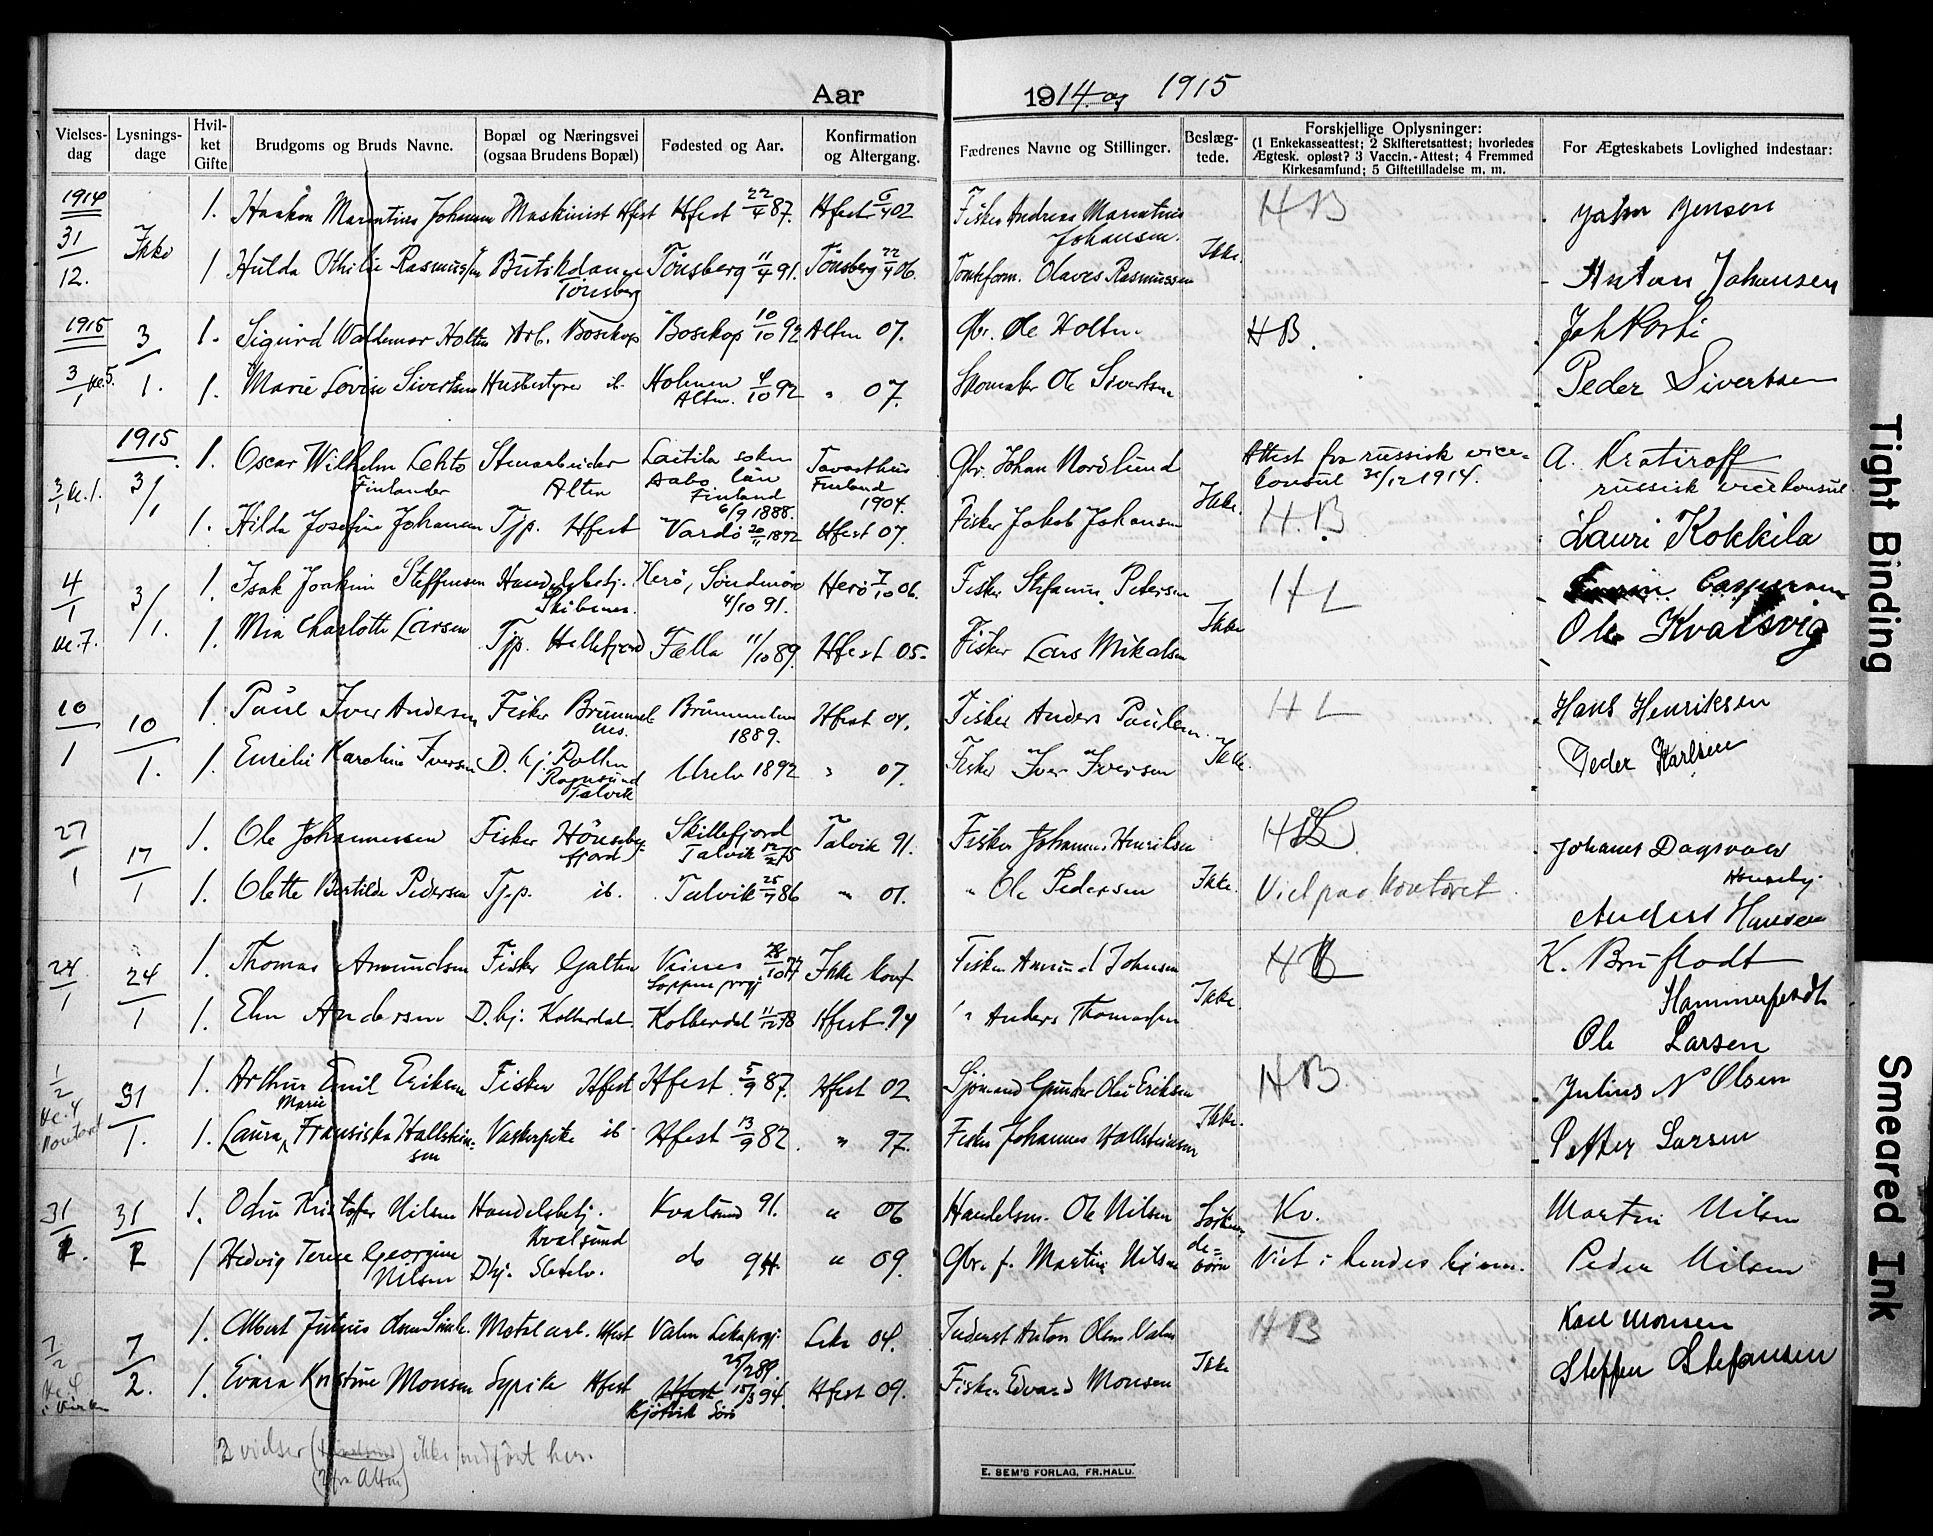 Aar 1914 og 1915
Vielses-dag
Lysnings-dage
Hvil-ket Gifte
Brudgoms og Bruds Navne.
Bopæl og Næringsvei (ogsaa Brudens Bopæl)
Fødested og Aar.
Konfirmation og Altergang.
Fædrenes Navne og Stillinger.
Beslæg-tede.
Forskjellige Oplysninger:
(1 Enkekasseattest; 2 Skifteretsattest; hvorledes
Ægtesk. opløst? 3 Vaccin.-Attest; 4 Fremmed
Kirkesamfund; 5 Giftetilladelse m. m.
For Ægteskabets Lovlighed indestaar:
1914 31/12. Ikke
1. Haakon Marentius Johansen Maskinist Hfest Hfest 22/4 87. Hfest 6/4 02 Fisker Andreas Marentius Johansen. Ikke. HB John Jensen
1 Hulda Othilie Rasmussen Butikdame Tönsberg Tönsberg 11/4 91. Tönsberg 22/4 06. Olaves Rasmussen Anton Johansen
1915 3/1 kl. 5. 3/1.
1. Sigurd Waldemar Holten Arb. Bosekop Bosekop 10/10 92 Alten 07. Gbr. Ole Holten HB.
1. Marie Lovise Sivertsen Husbestyrer ib. Holmen Alten. 4/10 92 " 07. Skomaker Ole Sivertsen Peder Sivertsen
3/1 kl. 1. 1915. 3/1
1. Oscar Wilhelm Lehto Finlander Stenarbeider Alten Laitila soken Aabo län Finland 6/9 1888. Tavasthus Finland 1904. Gbr. Johan Nordlund Ikke. Attest fra russisk vice-konsul 31/12 1914. A. Kratiroff russisk vicekonsul
1. Hilda Josefine Johansen Tjp. Hfest Vardö 20/11 1892 Hfest 07. Fisker Jakob Johansen H.B Lauri Kokkila
4/1 kl. 7. 3/1.
1. Isak Joakim Steffensen Handelsbetj. Skibenes. Herö, Söndmöre 4/10 91. Herö 7/10 06. Fisker Stefanus Petersen Ikke HL Caspersen
1. Mia Charlotte Larsen Tjp. Hellefjord Fælla 11/10 89. Hfest 05. Fisker Lars Mikalsen Ole Kvalsvig
10/1 10/1.
1. Paul Iver Andersen Fisker 1889. Hfest 04. Fisker Anders Paulsen Ikke. HL Hans Henriksen
1. Emilie Karoline Iversen D. hj. Pollen Rognsund Talvik 1892 " 07. Fisker Iver Iversen Peder Karlsen
27/1 17/1
1. Ole Johannessen Fisker Hönseby-fjord Skillefjord Talvik 12/2 75 Talvik 91. Fisker Johannes Henriksen Ikke. Johanes Dagsvold Hönseby
1. Olette Bertilde Pedersen Tj.p. ib. Talvik 25/7 86 " 01. " Ole Pedersen Viet paa Kontoret Anders Hansen
24/1 24/1
1. Thomas Amundsen Fisker Galten Loppen prgj. Ikke konf Fisker Amund Johnsen Ikke. K. Bruflodt Hammerfest
1. Elen Andersen D. hj. Kobberdal. Kobberdal 11/12 78 Hfest 94 " Anders Thomassen Ole Larsen
1/2 kl. 4 Kontoret 31/1.
1. Arthur Emil Eriksen Fisker Hfest Hfest 5/9 87. Hfest 02 Sjömand Olai Eriksen Ikke. HB. Julius N Olsen
1. Laura Marie Fransiska Hallstein-sen Vaskepike ib Hfest 13/9 82. " 97. Fisker Johannes Hallsteinsen Petter Larsen
31/1. 31/1
1. Odin Kristoffer Nilsen Handelsbetj. Kvalsund Kvalsund 91. " 06 Handelsm. Ole Nilsen Söskende-börn Kv. Martin Nilsen
1 Hedvig Terese Georgine Nilsen Dhj. do 94. " 09. Gbr. f. Martin Nilsen Viet i hendes hjem. Peder Nilsen
7/2 kl. 4 i kirken 7/2.
1. Albert Julius Motalarb. Hfest Valen Leka prgj. 25/2 89. Leka 04. Anton Olsen Valen Ikke HB Karl Monsen
1. Kristine Monsen Sypike Hfest Hfest 15/3 94. Kjötvik Sörö Hfest 09. Fisker Edvard Monsen Steffen Stefansen
2 vielser ( ) ikke indfört her.
(2 fra Alten)
E. SEM'S FORLAG, FR.HALD.
Tight Binding
Smeared Ink